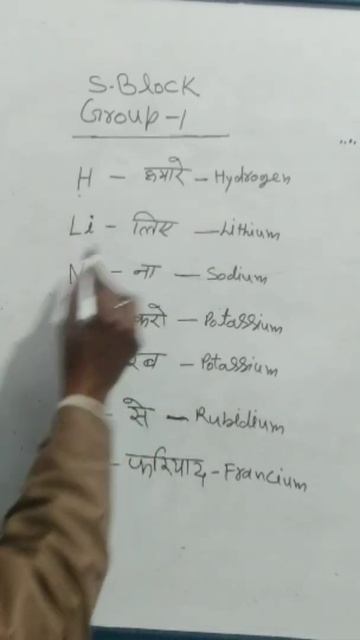 S-Block
Group-1
H - हमारे - Hydrogen
Li - लिए - Lithium
N - ना - Sodium
करो - Potassium
रब - Potassium
- से - Rubidium
- फरियाद - Francium